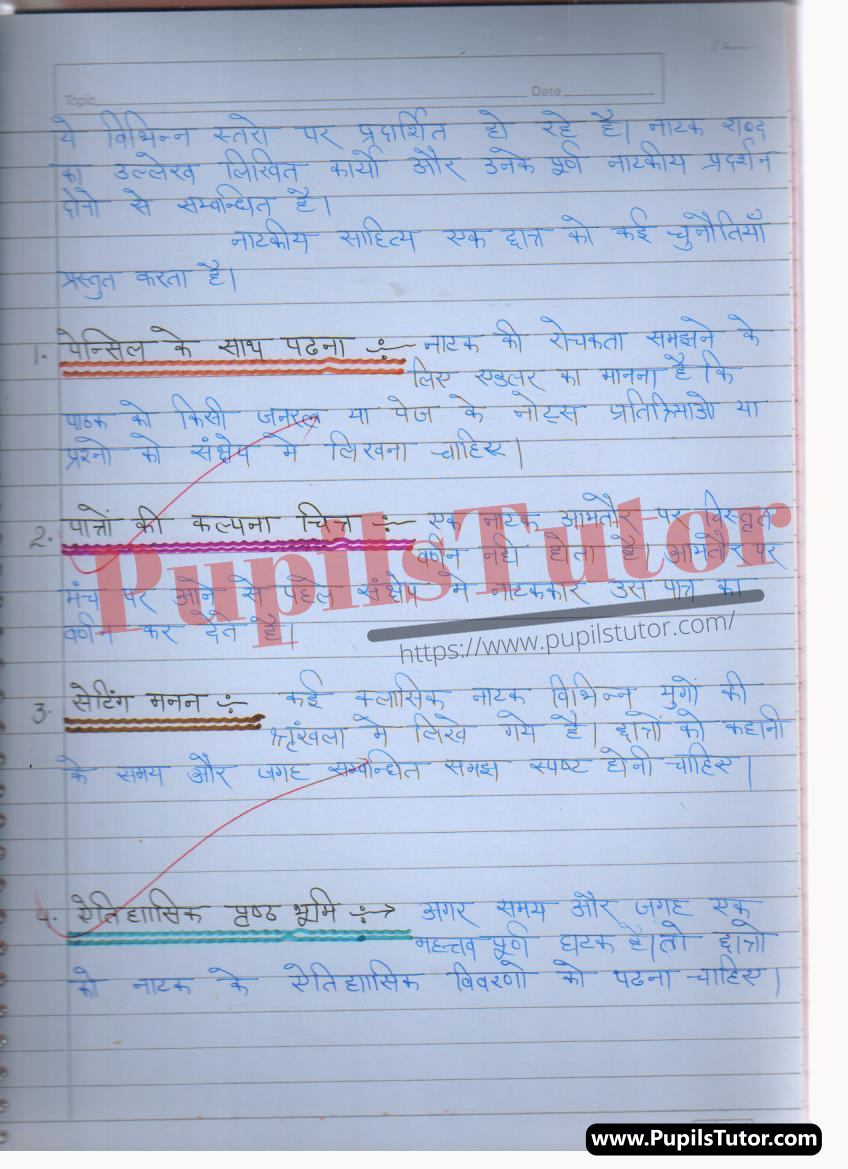 Topic
Date
ये विभिन्न स्तरो पर प्रदार्शित हो रहे है। नाटक शब्द
का उल्लेख लिखित कार्यो और उनके पूर्ण नाटकीय प्रदर्शन
दोनो से सम्बन्धित है।
नाटकीय साहित्य एक छात्र को कई चुनौतियाँ
प्रस्तुत करता है।
1. पेन्सिल के साथ पढना ÷ नाटक की रोचकता समझने के
लिए एडलर का मानना है कि
पाठक को किसी जनरल या पेज के नोट्स प्रतिक्रियाओ या
प्रश्नो को संक्षेप मे लिखना चाहिए।
2. पात्रों की कल्पना चित्र ÷ एक नाटक आमतौर पर विस्तृत
वर्णन नही होता है। आमतौर पर
मंच पर आने से पहले संक्षेप मे नाटककार उस पात्र का
वर्णन कर देते है।
PupilsTutor
https://www.pupilstutor.com/
3. सेटिंग मनन ÷ कई क्लासिक नाटक विभिन्न युगों की
श्रृंखला मे लिखे गये है। छात्रों को कहानी
के समय और जगह सम्बन्धित समझ स्पष्ट होनी चाहिए।
4. ऐतिहासिक पृष्ठ भूमि ÷→ अगर समय और जगह एक
महत्त्वपूर्ण घटक है। तो छात्रो
को नाटक के ऐतिहासिक विवरणो को पढना चाहिए।
www.PupilsTutor.com